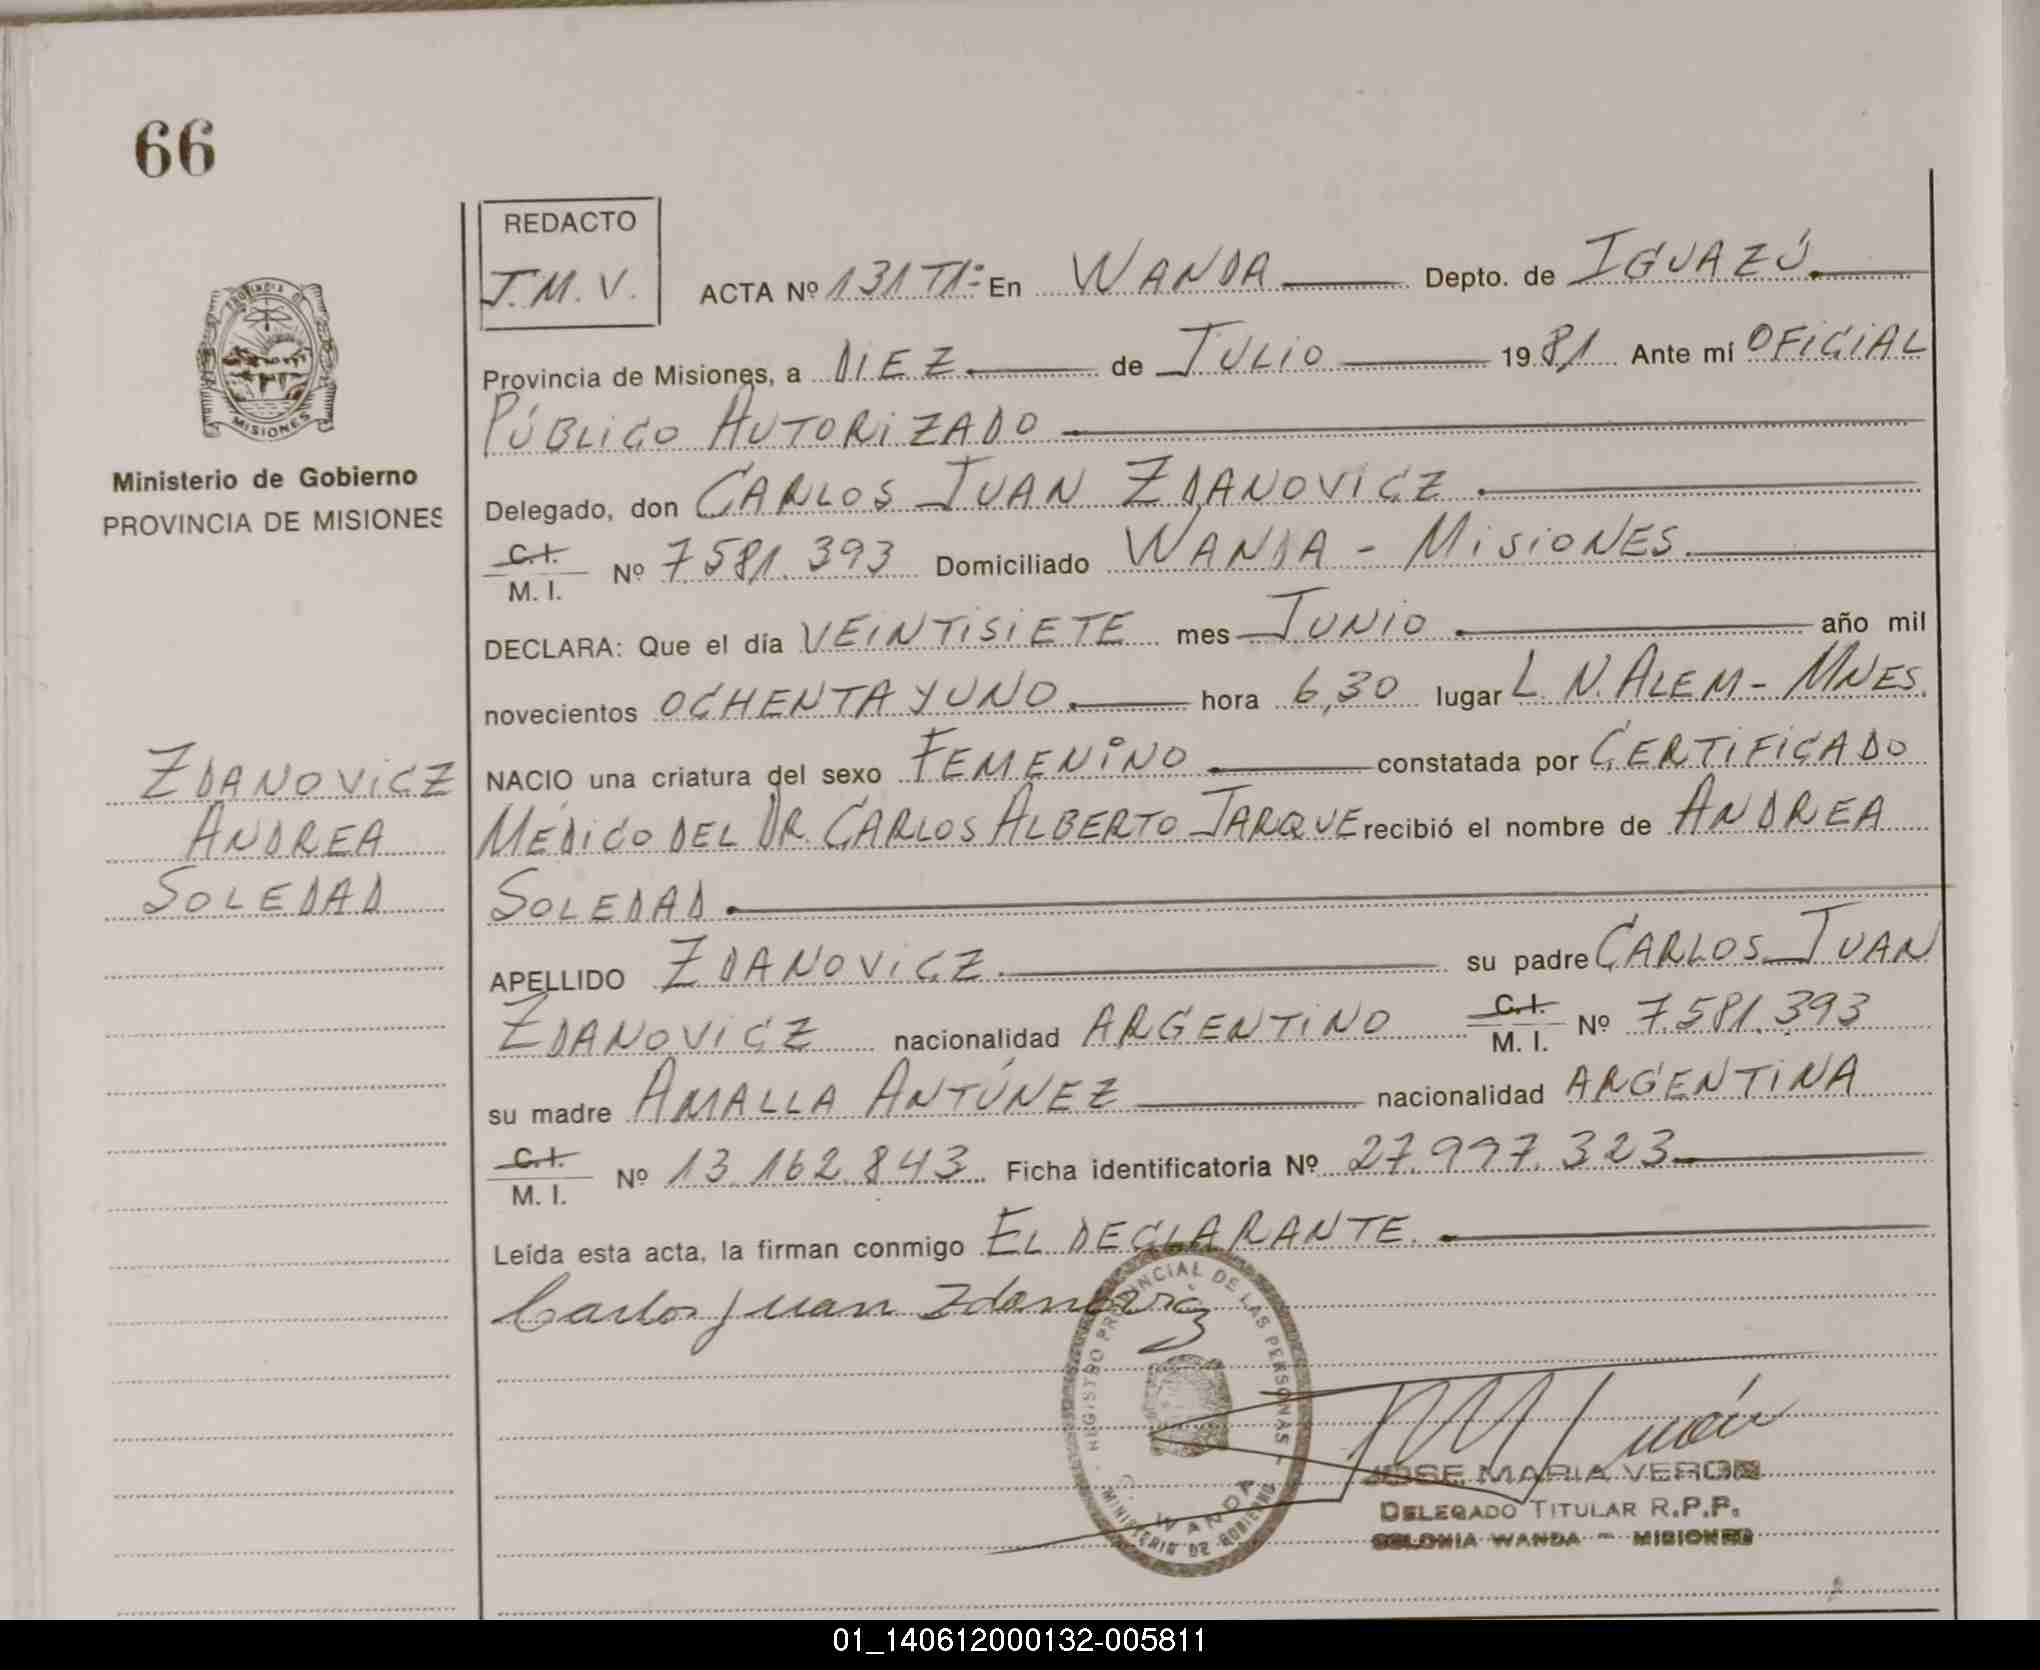 66
REDACTO
J.M.V.
ACTA Nº 131 T1= En WANDA Depto. de IGUAZÚ
Provincia de Misiones, a DIEZ de JULIO 1981 Ante mí OFICIAL
PÚBLICO AUTORIZADO
Delegado, don CARLOS JUAN ZDANOVICZ
C.I.
M. I. Nº 7.581.393 Domiciliado WANDA - MISIONES
DECLARA: Que el día VEINTISIETE mes JUNIO año mil
novecientos OCHENTA Y UNO hora 6,30 lugar L. N. ALEM - MNES.
NACIO una criatura del sexo FEMENINO constatada por CERTIFICADO
MÉDICO DEL DR. CARLOS ALBERTO JARQUE recibió el nombre de ANDREA
SOLEDAD
APELLIDO ZDANOVICZ su padre CARLOS JUAN
ZDANOVICZ nacionalidad ARGENTINO C.I.
M. I. Nº 7.581.393
su madre AMALLA ANTÚNEZ nacionalidad ARGENTINA
C.I.
M. I. Nº 13.162.843 Ficha identificatoria Nº 27.997.323
Leída esta acta, la firman conmigo EL DECLARANTE.
Carlos Juan Zdanovicz
PROVINCIA DE
MISIONES
Ministerio de Gobierno
PROVINCIA DE MISIONES
ZDANOVICZ
ANDREA
SOLEDAD
REGISTRO PROVINCIAL DE LAS PERSONAS
WANDA
MINISTERIO DE GOBIERNO
JOSE MARIA VERON
DELEGADO TITULAR R.P.P.
COLONIA WANDA - MISIONES
01_140612000132-005811